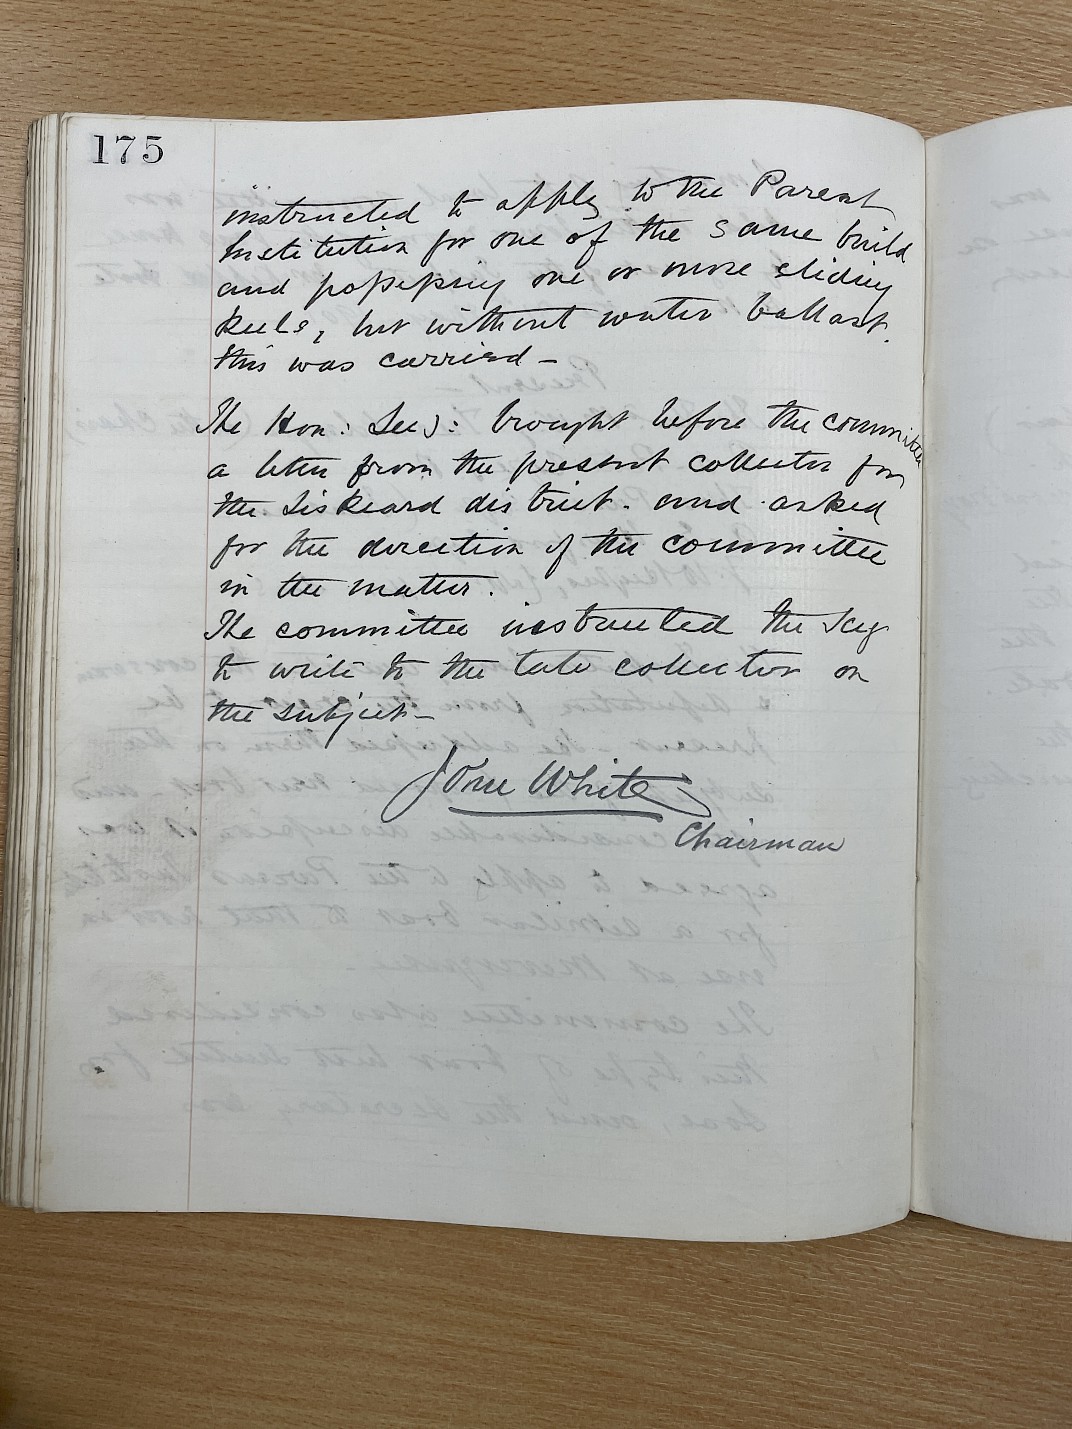 175
instructed to apply to the Parent
Institution for one of the same build
and possessing one or more sliding
keels, but without water ballast.
this was carried -
The Hon: Secy: brought before the committee
a letter from the present collector for
the Liskeard district. and asked
for the direction of the committee
in the matter.
The committee instructed the Secy
to write to the late collector on
the subject -
White
Chairman